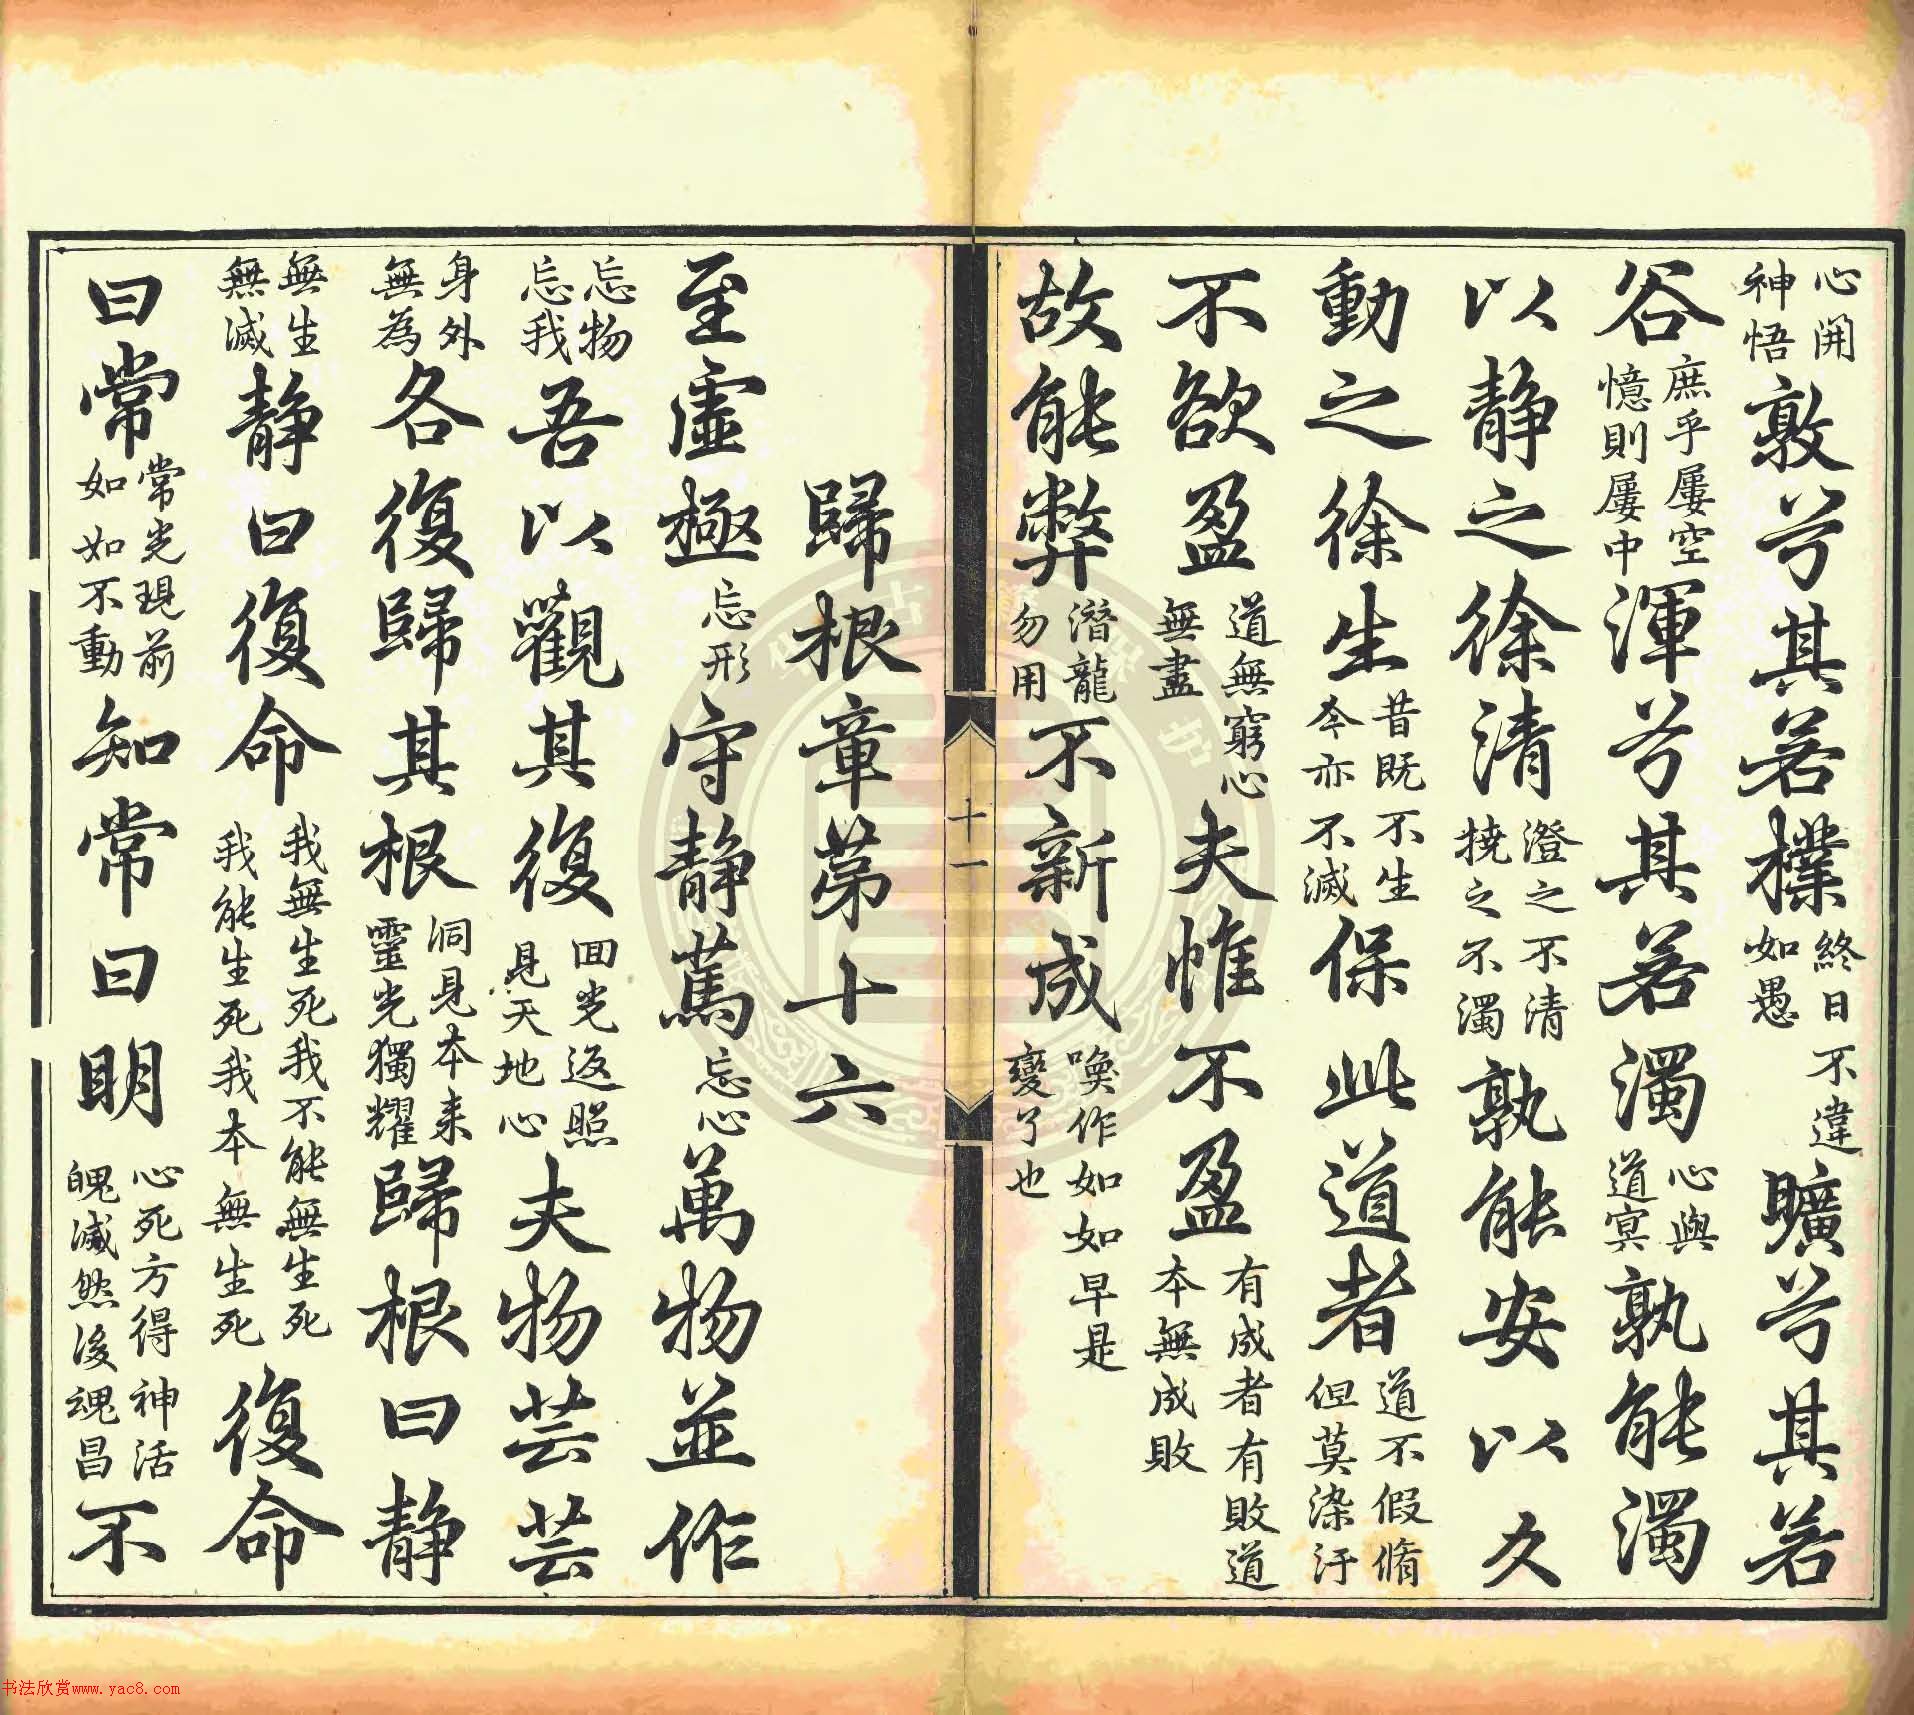 心開神悟敦兮其若樸終日不違如愚曠兮其若
谷庶乎屢空憶則屢中渾兮其若濁心與道冥孰能濁
以静之徐清澄之不清撓之不濁孰能安以久
動之徐生昔既不生今亦不滅保此道者道不假脩但莫染汙
不欲盈道無窮心無盡夫惟不盈有成者有敗道本無成敗
故能弊潛龍勿用不新成喚作如如早是變了也
十一
歸根章第十六
至虛極忘形守静篤忘心萬物並作
忘物忘我吾以觀其復回光返照見天地心夫物芸芸
身外無為各復歸其根洞見本来靈光獨耀歸根曰静
無生無滅静曰復命我無生死我不能無生死我能生死我本無生死復命
曰常常光現前如如不動知常曰明心死方得神活魄滅然後魂昌不
书法欣赏www.yac8.com